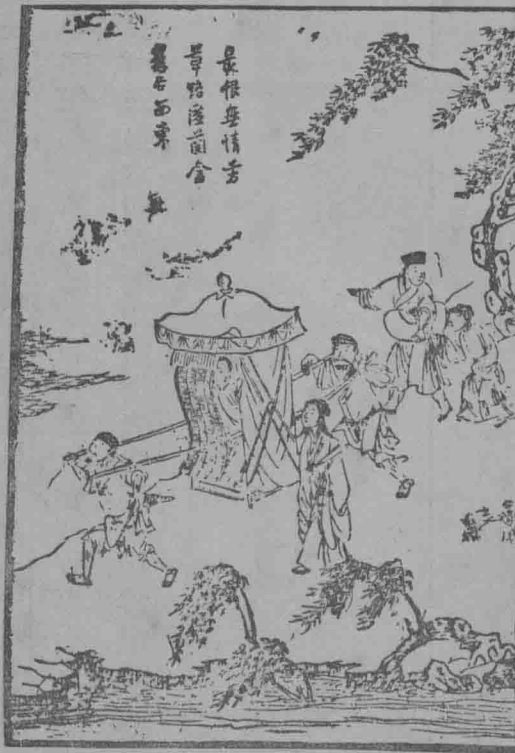 最恨無情芳
草路匿蘭含
蕙各西東